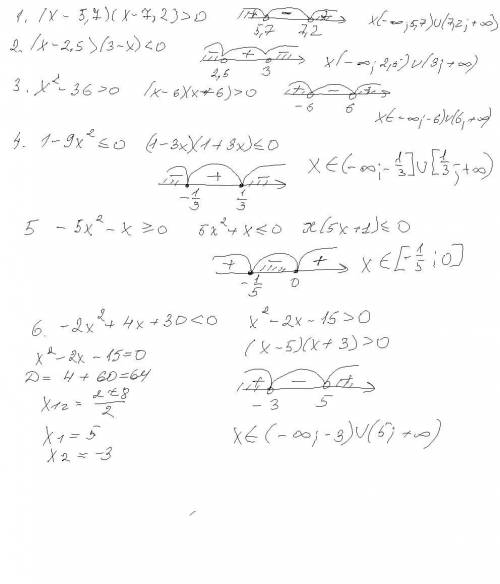 1. (x - 5,7)(x - 7,2) > 0 + - + 5,7 7,2 x(-∞; 5,7)∪(7,2; +∞)
2. (x - 2,5)(3 - x) < 0 - + - 2,5 3 x(-∞; 2,5)∪(3; +∞)
3. x² - 36 > 0 (x - 6)(x + 6) > 0 + - + -6 6
x∈(-∞; -6)∪(6; +∞)
4. 1 - 9x² ≤ 0 (1 - 3x)(1 + 3x) ≤ 0
- + - -1/3 1/3 x∈(-∞; -1/3]∪[1/3; +∞)
5 - 5x² - x ≥ 0 5x² + x ≤ 0 x(5x + 1) ≤ 0
+ - + -1/5 0 x∈[-1/5; 0]
6. -2x² + 4x + 30 < 0 x² - 2x - 15 > 0
x² - 2x - 15 = 0 (x - 5)(x + 3) > 0
D = 4 + 60 = 64 + - +
x12 = (2 ± 8)/2 -3 5
x1 = 5 x∈(-∞; -3)∪(5; +∞)
x2 = -3